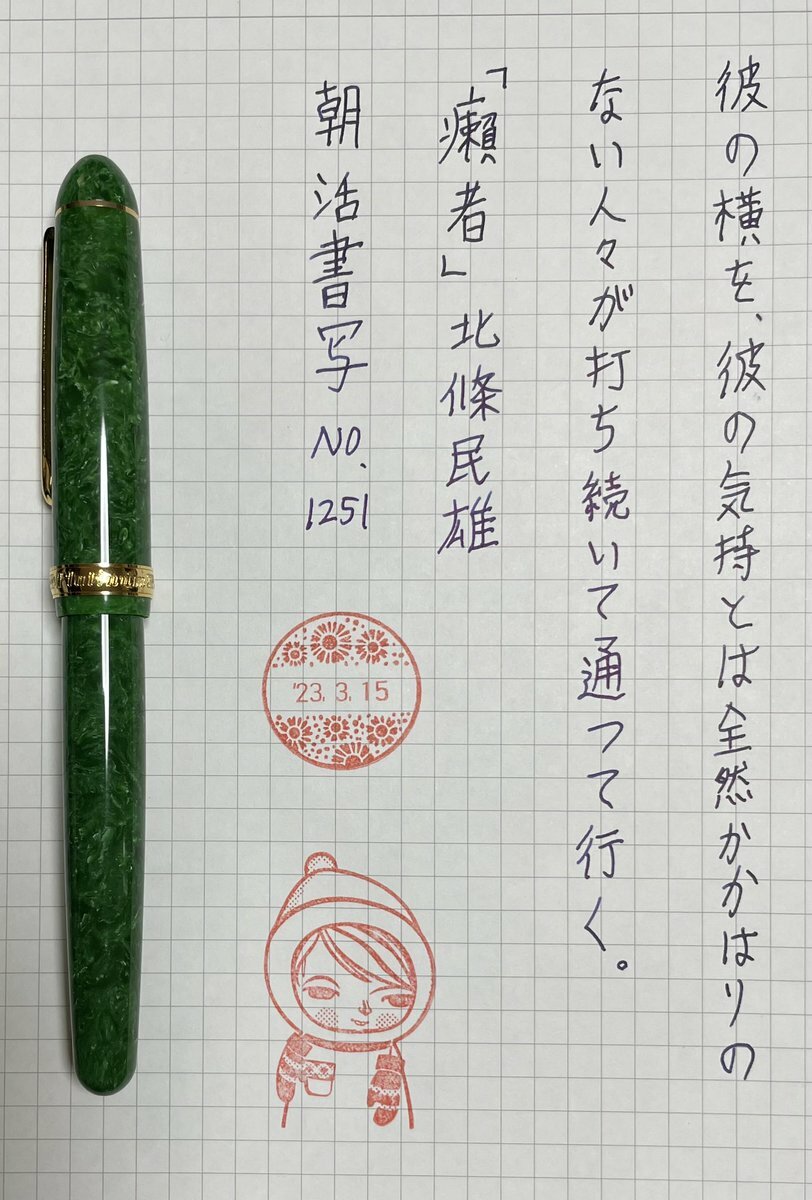 彼の横を、彼の気持とは全然かかはりの
ない人々が打ち続いて通つて行く。
「癩者」北條民雄
朝活書写 NO.
1251
'23. 3. 15